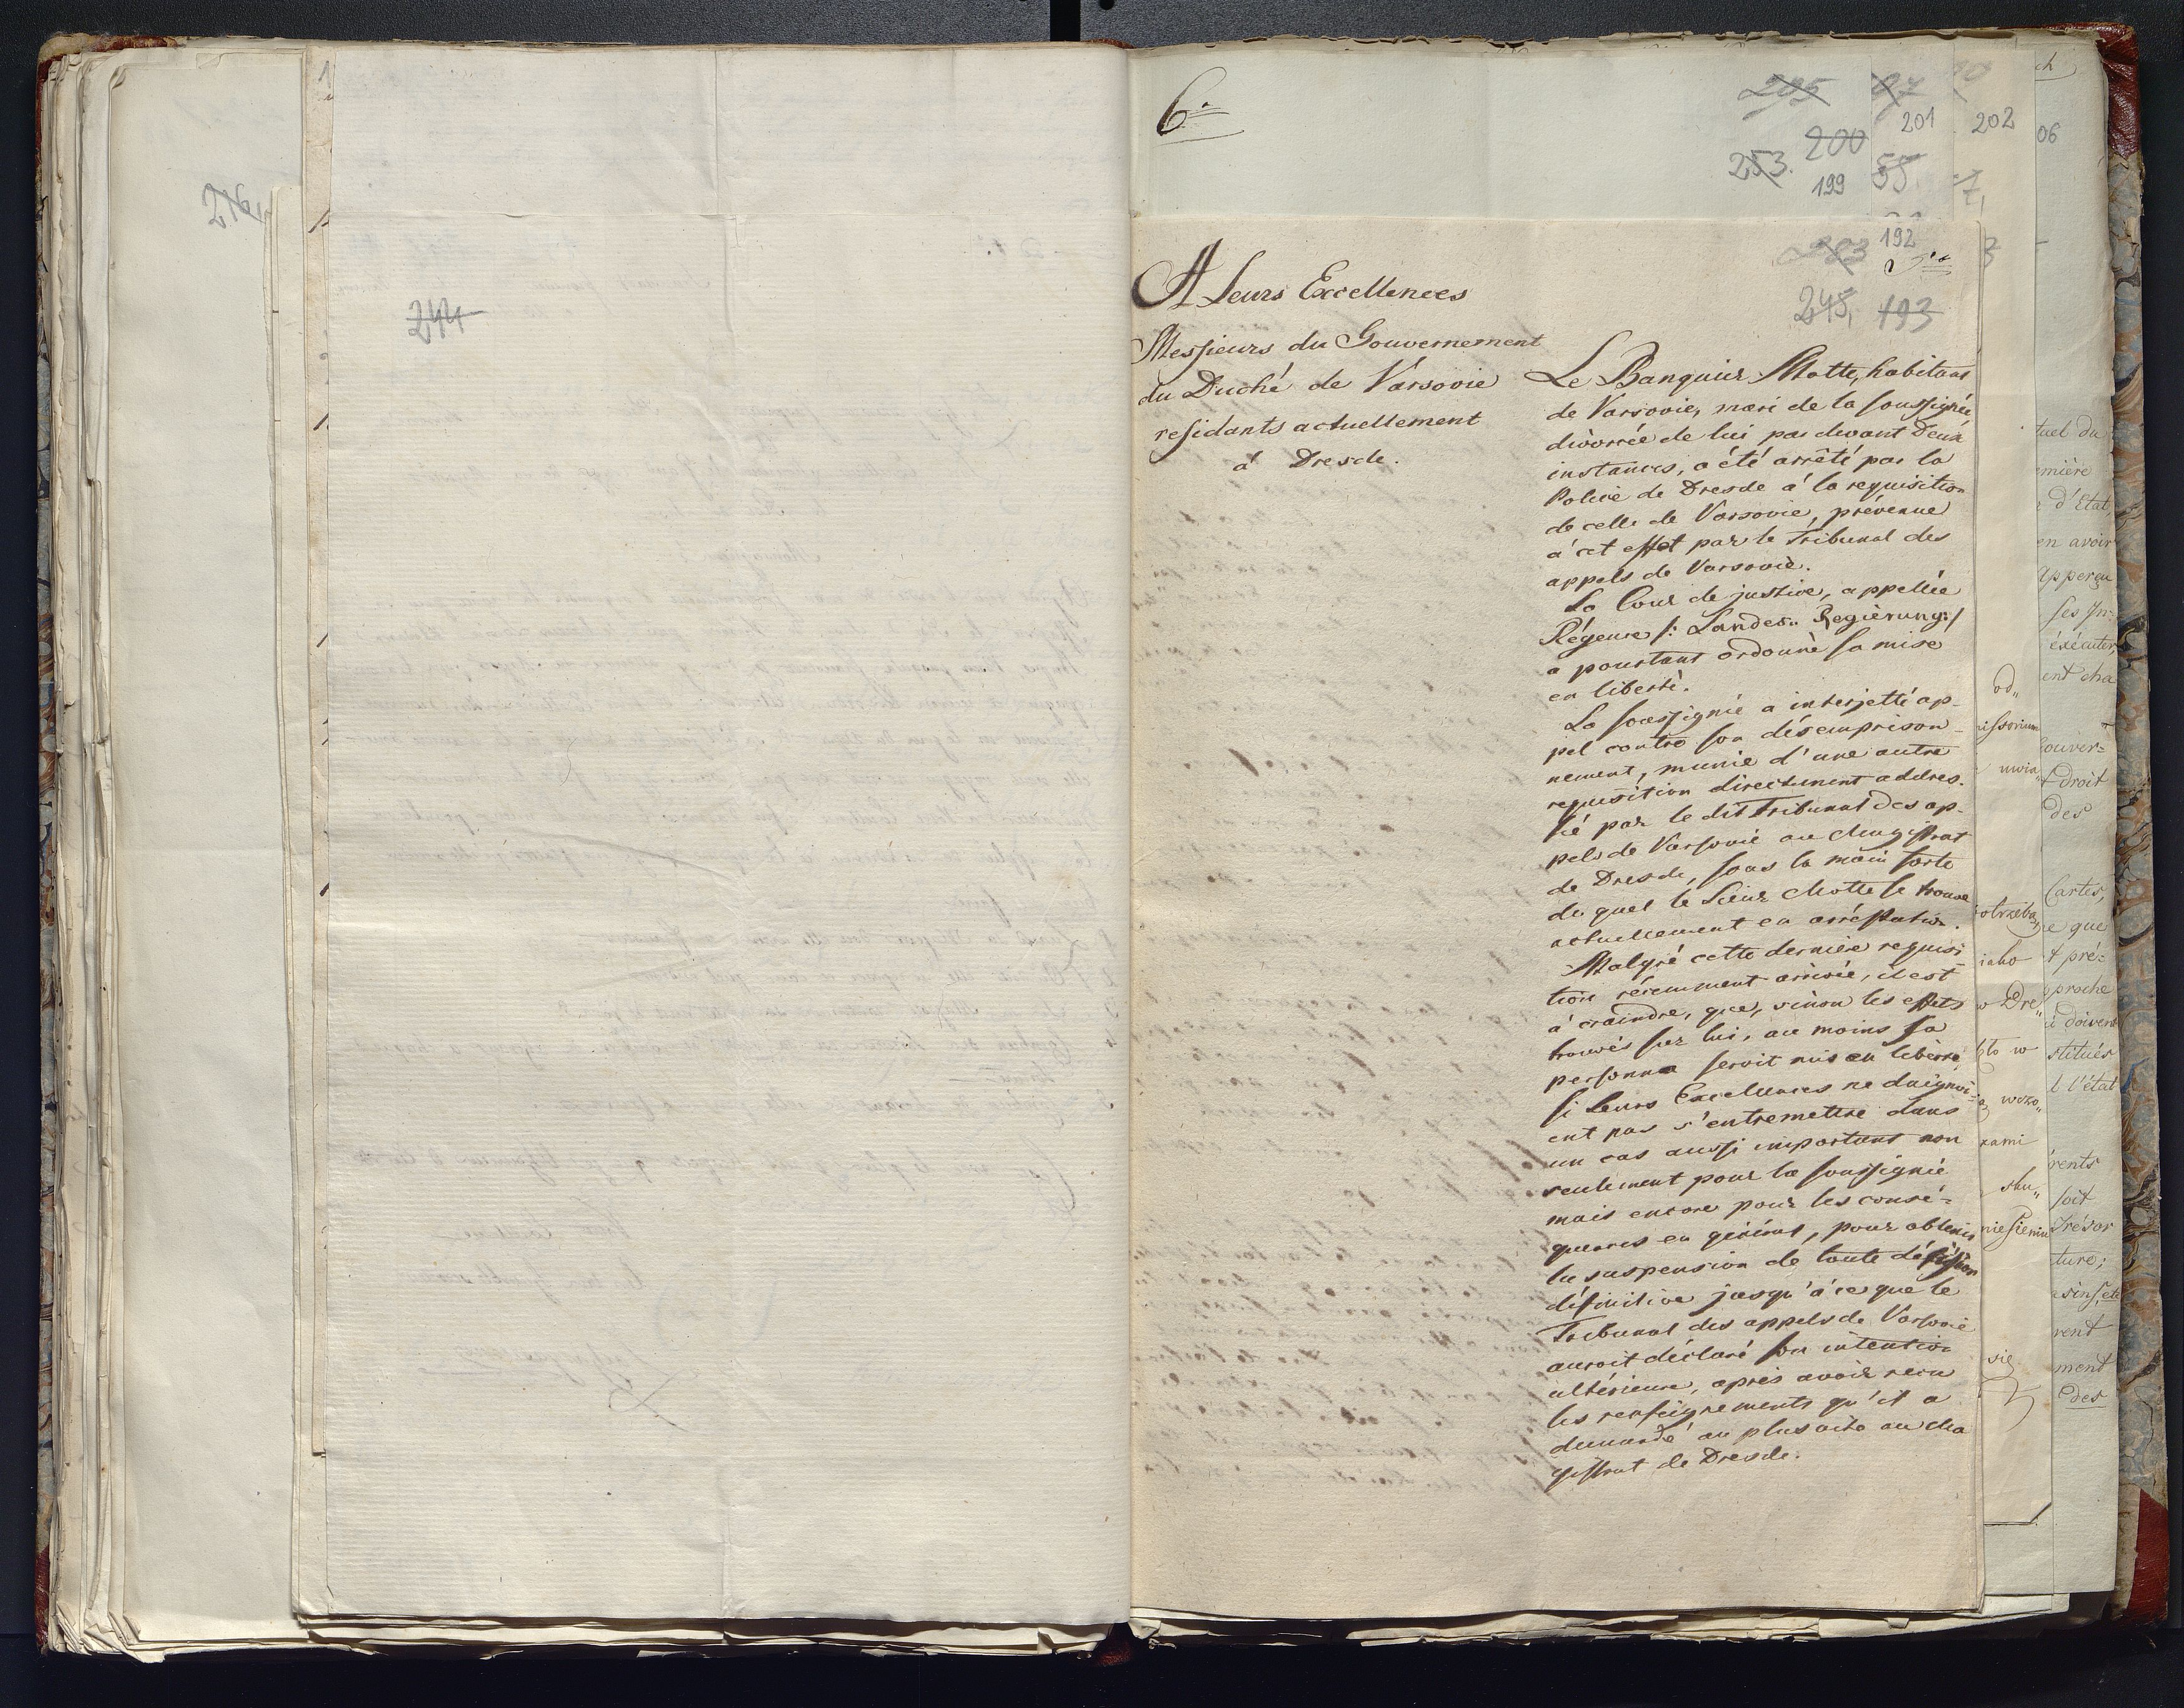 244
6a
200
199
201
202
06
192
253
55
245
193
A Leurs Excellences
Messieurs du Gouvernement
du Duché de Varsovie
residants actuellement
à Dresde.
Le Banquier Motte, habitant
de Varsovie, mari de la soussignée
divorcée de lui par devant deux
instances, a été arrêté par la
Police de Dresde à la requisition
de celle de Varsovie, prévenue
à cet effet par le Tribunal des
appels de Varsovie.
La Cour de justice, appellée
Régence /: Landes„ Regierung :/
a pourtant ordonné sa mise
en liberté.
La soussignée a interjetté ap-
pel contre son désemprison-
nement, munie d'une autre
requisition directement addres-
sé par le dit Tribunal des ap-
pels de Varsovie au Magistrat
de Dresde, sous la main forte
du quel le Sieur Motte se trouve
actuellement en arrêstation.
Malgré cette dernière requisi-
tion récemment arrivée, il est
à craindre, que, sinon les effets
trouvés sur lui, au moins sa
personne seroit mis en liberté,
si Leurs Excellences ne daignoi-
ent pas s'entremettre dans
un cas aussi important non
seulement pour la soussignée
mais encore pour les consé-
quences en général, pour obtenir
la suspension de toute décision
définitive jusqu'à ce que le
Tribunal des appels de Varsovie
auroit déclaré son intention
ultérieure, après avoir reçu
les renseignements qu'il a
demandé au plus vite au Ma
gistrat de Dresde.
tuel du
d'Etat
en avoir
apperçu
exécuter
droit
des
Cartes,
e que
t pré-
proche
doivent
stitués
l'état
soit
Trésor
ture;
rent
ment
des